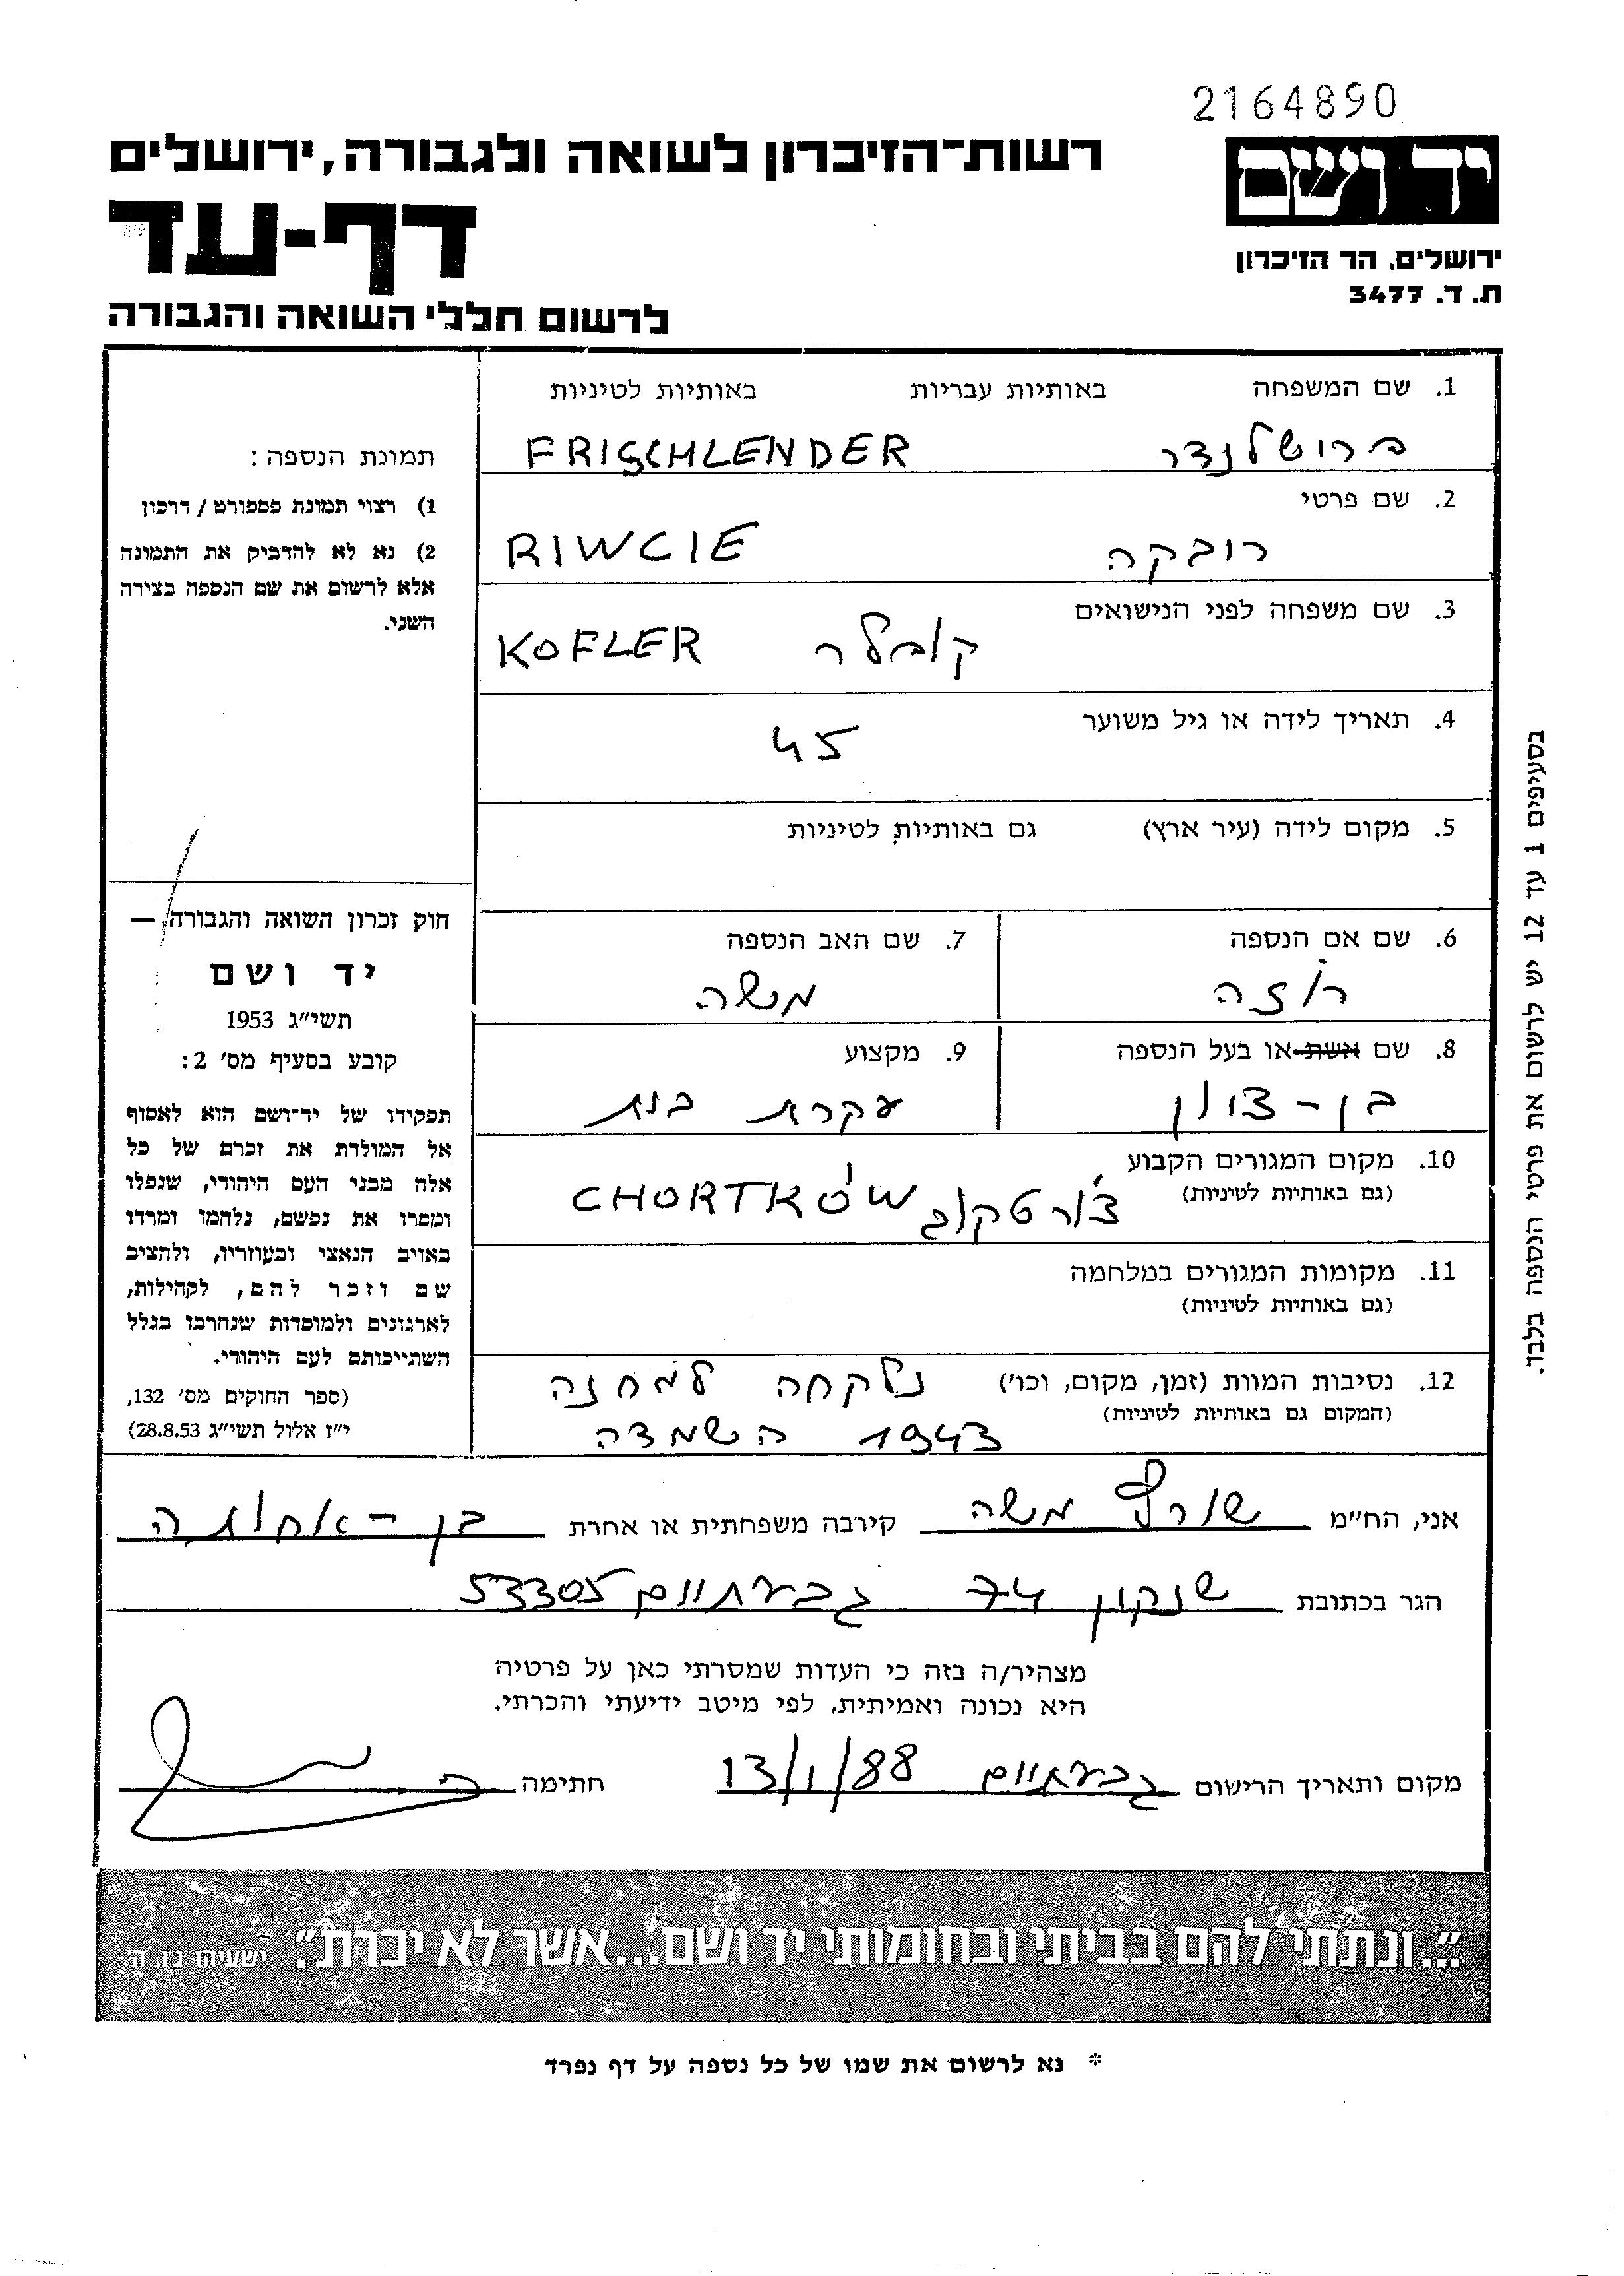 2164890
רשות־הזיכרון לשואה ולגבורה, ירושלים
יד ושם
דף-עד
ירושלים, הר הזיכרון
ת. ד. 3477
לרשום חללי השואה והגבורה
1. שם המשפחה באותיות עבריות באותיות לטיניות
פרישלנדר FRISCHLENDER
2. שם פרטי
רובקה RIWCIE
3. שם משפחה לפני הנישואים
קופלר KOFLER
4. תאריך לידה או גיל משוער
45
5. מקום לידה (עיר ארץ) גם באותיות לטיניות
6. שם אם הנספה
רוזה
7. שם האב הנספה
משה
8. שם אשת או בעל הנספה
בן-ציון
9. מקצוע
עקרת בית
10. מקום המגורים הקבוע
(גם באותיות לטיניות)
צ'ורטקוב CHORTKÓW
11. מקומות המגורים במלחמה
(גם באותיות לטיניות)
12. נסיבות המוות (זמן, מקום, וכו') נלקחה למחנה
(המקום גם באותיות לטיניות)
השמדה 1943
תמונת הנספה:
1) רצוי תמונת פספורט / דרכון
2) נא לא להדביק את התמונה
אלא לרשום את שם הנספה בצידה
השני.
חוק זכרון השואה והגבורה —
יד ושם
תשי"ג 1953
קובע בסעיף מס' 2:
תפקידו של יד־ושם הוא לאסוף
אל המולדת את זכרם של כל
אלה מבני העם היהודי, שנפלו
ומסרו את נפשם, נלחמו ומרדו
באויב הנאצי ובעוזריו, ולהציב
שם וזכר להם, לקהילות,
לארגונים ולמוסדות שנחרבו בגלל
השתייכותם לעם היהודי.
(ספר החוקים מס' 132,
י"ז אלול תשי"ג 28.8.53)
בסעיפים 1 עד 12 יש לרשום את פרטי הנספה בלבד.
אני, הח"מ שורף משה קירבה משפחתית או אחרת בן-אחותה
הגר בכתובת שנקין 74 גבעתיים 53305
מצהיר/ה בזה כי העדות שמסרתי כאן על פרטיה
היא נכונה ואמיתית, לפי מיטב ידיעתי והכרתי.
מקום ותאריך הרישום גבעתיים 13/1/88 חתימה
"...ונתתי להם בביתי ובחומותי יד ושם...אשר לא יכרת". ישעיהו נ"ו, ה'
* נא לרשום את שמו של כל נספה על דף נפרד